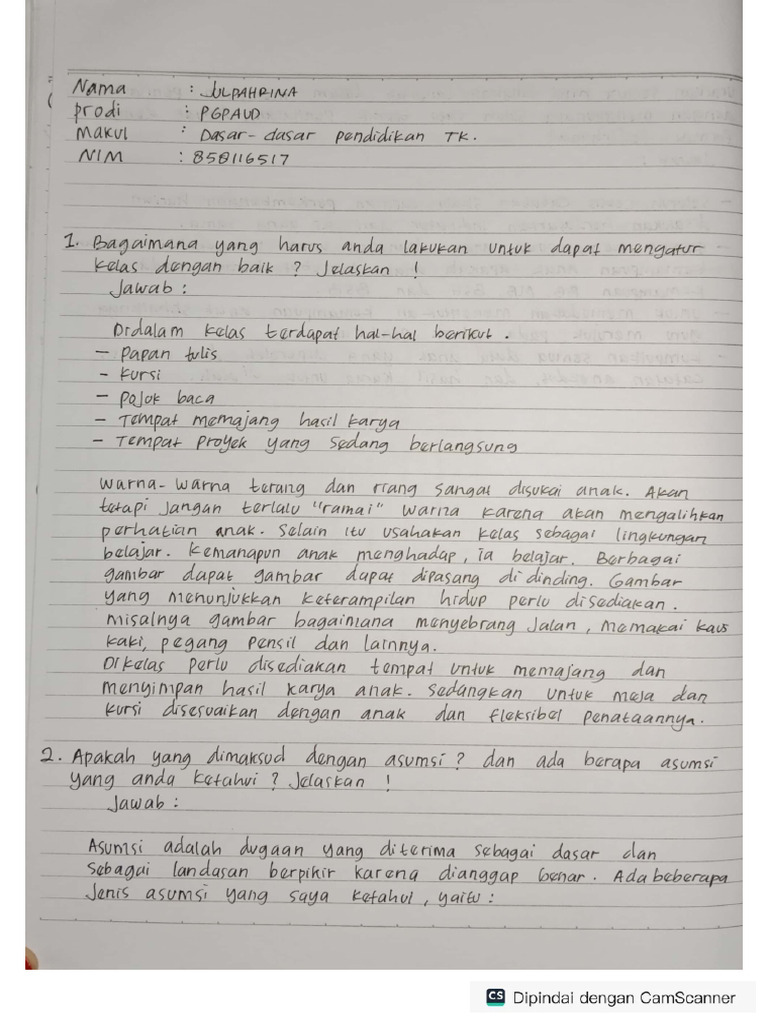 Nama : JULPAHRINA
Prodi : PGPAUD
Makul : Dasar-dasar pendidikan TK.
NIM : 858116517
1. Bagaimana yang harus anda lakukan untuk dapat mengatur
kelas dengan baik ? Jelaskan !
Jawab :
Didalam kelas terdapat hal-hal berikut .
- Papan tulis
- Kursi
- Pojok baca
- Tempat memajang hasil karya
- Tempat Proyek yang sedang berlangsung
Warna-warna terang dan riang sangat disukai anak. Akan
tetapi jangan terlalu "ramai" warna karena akan mengalihkan
perhatian anak. Selain itu usahakan kelas sebagai lingkungan
belajar. Kemanapun anak menghadap, ia belajar. Berbagai
gambar dapat gambar dapat dipasang di dinding. Gambar
yang menunjukkan keterampilan hidup perlu disediakan.
misalnya gambar bagaimana menyebrang Jalan, memakai kaus
kaki, pegang pensil dan lainnya.
Dikelas perlu disediakan tempat untuk memajang dan
menyimpan hasil karya anak. Sedangkan untuk meja dan
kursi disesuaikan dengan anak dan fleksibel penataannya.
2. Apakah yang dimaksud dengan asumsi ? dan ada berapa asumsi
yang anda ketahui ? Jelaskan !
Jawab :
Asumsi adalah dugaan yang diterima sebagai dasar dan
sebagai landasan berpikir karena dianggap benar. Ada beberapa
Jenis asumsi yang saya ketahui, yaitu :
CS Dipindai dengan CamScanner